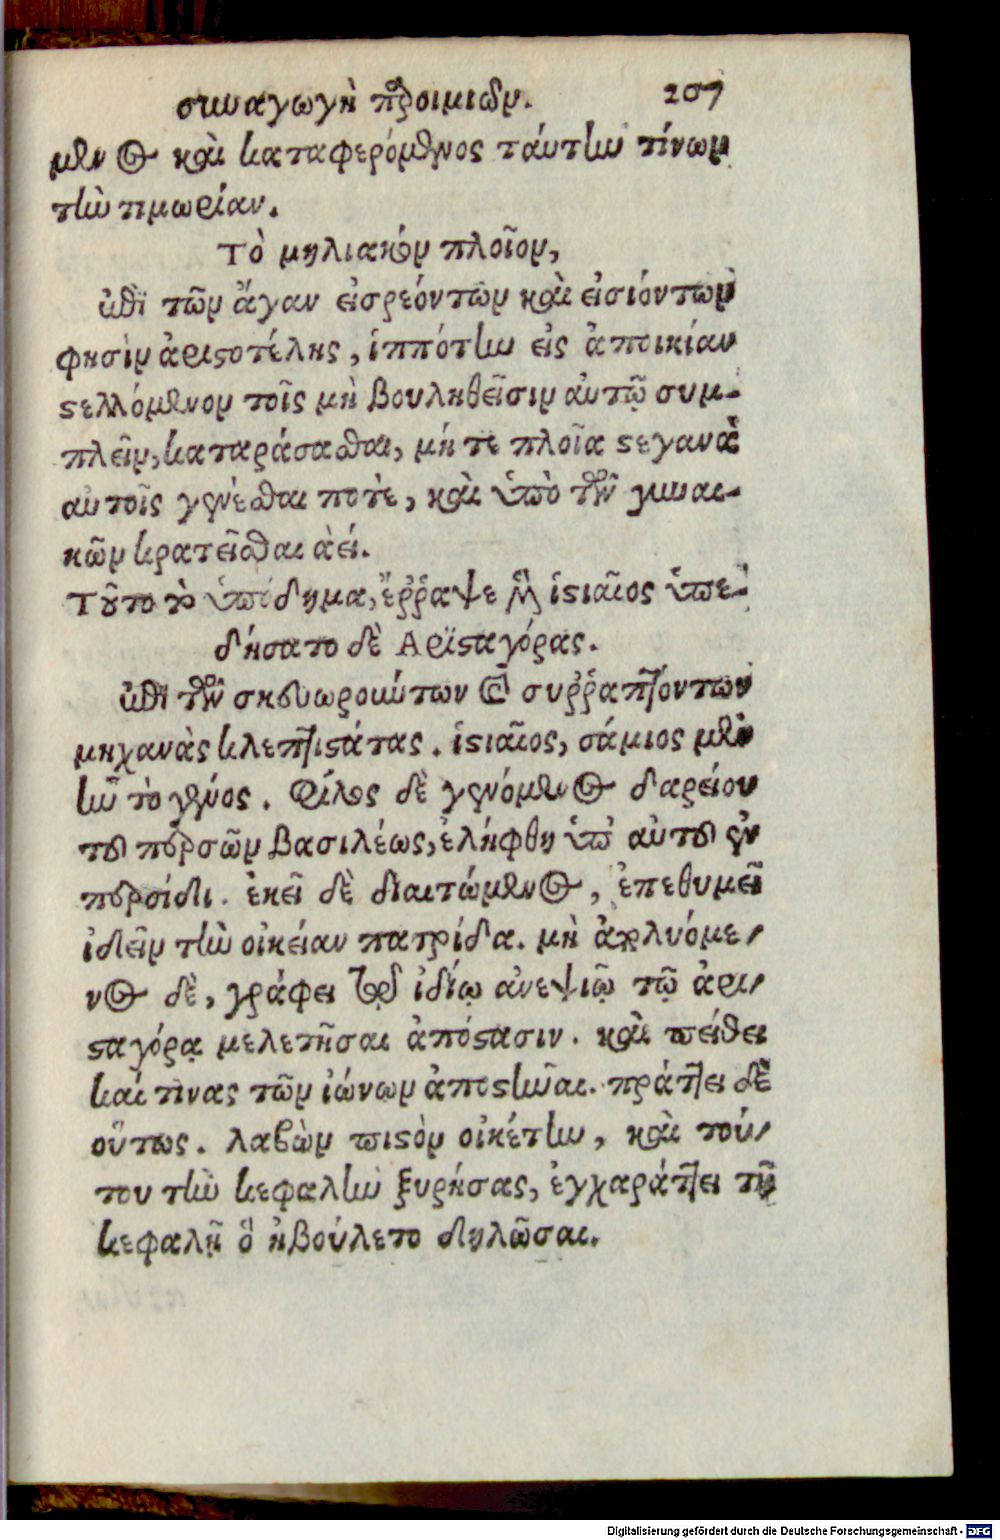 συναγωγὴ παροιμιῶν. 207
μενος καὶ καταφερόμενος ταύτην τίνων
τὴν τιμωρίαν.
Τὸ μηλιακὸν πλοῖον,
ἐπὶ τῶν ἄγαν εἰσρεόντων καὶ εἰσιόντων
φησὶν ἀριστοτέλης, ἱππότην εἰς ἀποικίαν
στελλόμενον τοῖς μὴ βουληθεῖσιν αὐτῷ συμ-
πλεῖν, καταράσασθαι, μή τε πλοῖα στεγανὰ
αὐτοῖς γενέσθαι ποτὲ, καὶ ὑπὸ τῶν γυναι-
κῶν κρατεῖσθαι ἀεί.
Τοῦτο τὸ ὑπόδημα, ἔῤῥαψε μὲν ἱστιαῖος ὑπε-
δήσατο δὲ Ἀρισταγόρας.
ἐπὶ τῶν σκευωρουμένων καὶ συῤῥαπτόντων
μηχανὰς κλεπτιστάτας. ἱστιαῖος, σάμιος μὲν
ἦν τὸ γένος. Φίλος δὲ γενόμενος δαρείου
τοῦ περσῶν βασιλέως, ἐλήφθη ὑπ' αὐτοῦ ἐν
περσίδι. ἐκεῖ δὲ διαιτώμενος, ἐπεθύμει
ἰδεῖν τὴν οἰκείαν πατρίδα. μὴ ἀπολυόμε-
νος δὲ, γράφει τῷ ἰδίῳ ἀνεψιῷ τῷ ἀρι-
σταγόρᾳ μελετῆσαι ἀπόστασιν. καὶ πείθει
καί τινας τῶν ἰώνων ἀποστῆναι. πράττει δὲ
οὕτως. λαβὼν πιστὸν οἰκέτην, καὶ τού-
του τὴν κεφαλὴν ξυρήσας, ἐγχαράττει τῇ
κεφαλῇ ὃ ἠβούλετο δηλῶσαι.
Digitalisierung gefördert durch die Deutsche Forschungsgemeinschaft - DFG